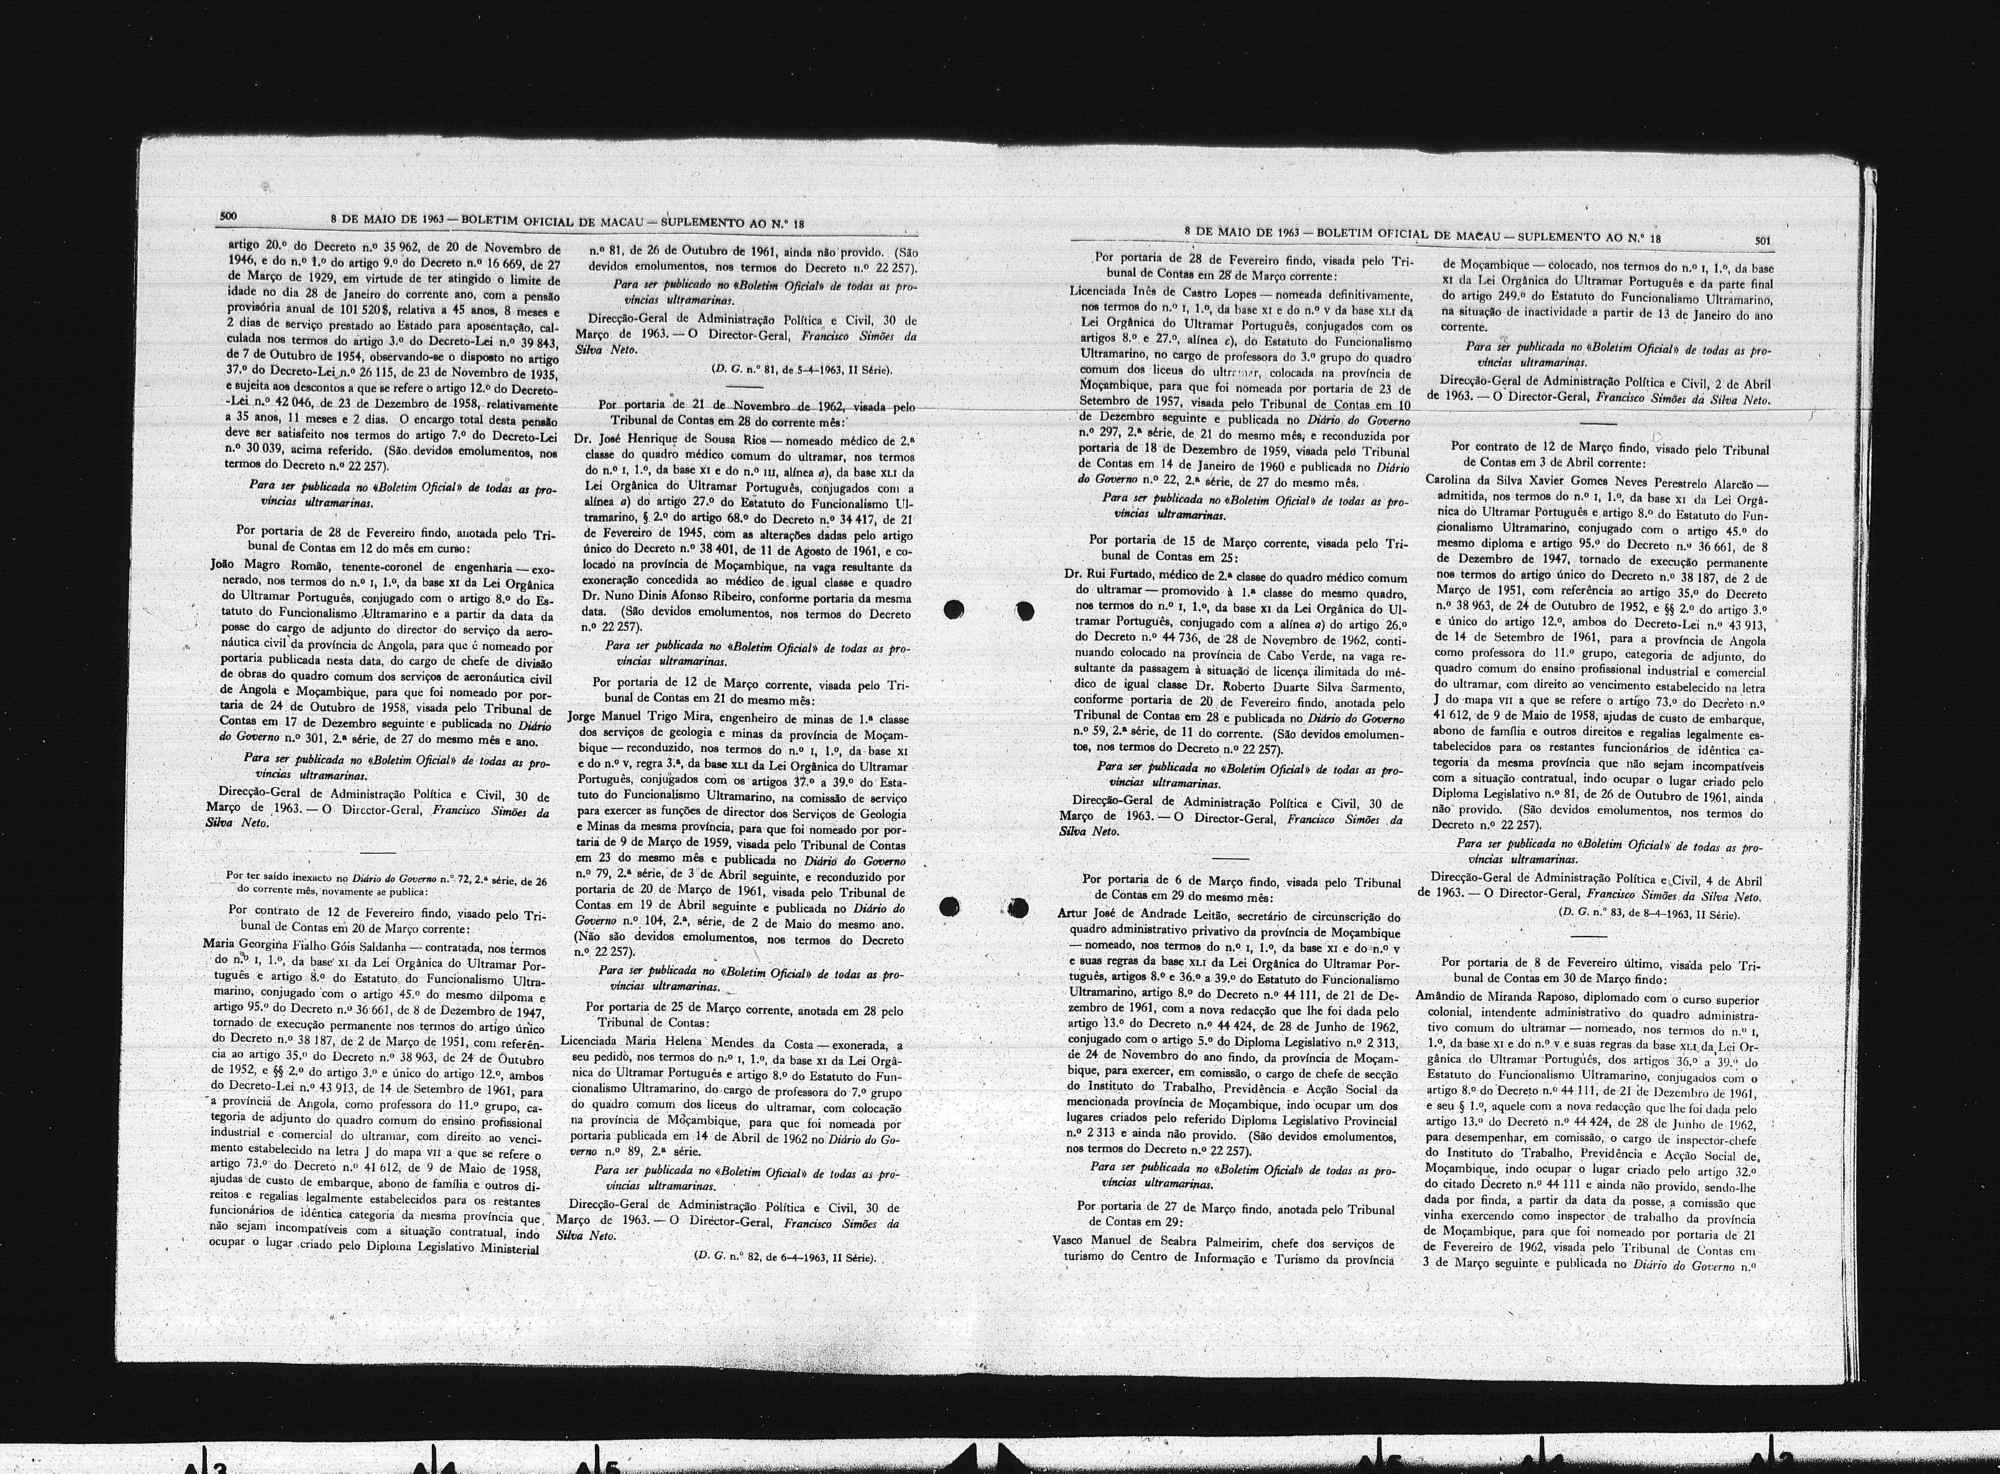 500
8 DE MAIO DE 1963 — BOLETIM OFICIAL DE MACAU — SUPLEMENTO AO N.º 18
artigo 20.º do Decreto n.º 35 962, de 20 de Novembro de
1946, e do n.º 1.º do artigo 9.º do Decreto n.º 16 669, de 27
de Março de 1929, em virtude de ter atingido o limite de
idade no dia 28 de Janeiro do corrente ano, com a pensão
provisória anual de 101 520$, relativa a 45 anos, 8 meses e
2 dias de serviço prestado ao Estado para aposentação, cal-
culada nos termos do artigo 3.º do Decreto-Lei n.º 39 843,
de 7 de Outubro de 1954, observando-se o disposto no artigo
37.º do Decreto-Lei n.º 26 115, de 23 de Novembro de 1935,
e sujeita aos descontos a que se refere o artigo 12.º do Decreto-
-Lei n.º 42 046, de 23 de Dezembro de 1958, relativamente
a 35 anos, 11 meses e 2 dias. O encargo total desta pensão
deve ser satisfeito nos termos do artigo 7.º do Decreto-Lei
n.º 30 039, acima referido. (São devidos emolumentos, nos
termos do Decreto n.º 22 257).
Para ser publicada no «Boletim Oficial» de todas as pro-
víncias ultramarinas.
Por portaria de 28 de Fevereiro findo, anotada pelo Tri-
bunal de Contas em 12 do mês em curso:
João Magro Romão, tenente-coronel de engenharia — exo-
nerado, nos termos do n.º I, 1.º, da base XI da Lei Orgânica
do Ultramar Português, conjugado com o artigo 8.º do Es-
tatuto do Funcionalismo Ultramarino e a partir da data da
posse do cargo de adjunto do director do serviço da aero-
náutica civil da província de Angola, para que é nomeado por
portaria publicada nesta data, do cargo de chefe de divisão
de obras do quadro comum dos serviços de aeronáutica civil
de Angola e Moçambique, para que foi nomeado por por-
taria de 24 de Outubro de 1958, visada pelo Tribunal de
Contas em 17 de Dezembro seguinte e publicada no Diário
do Governo n.º 301, 2.ª série, de 27 do mesmo mês e ano.
Para ser publicada no «Boletim Oficial» de todas as pro-
víncias ultramarinas.
Direcção-Geral de Administração Política e Civil, 30 de
Março de 1963. — O Director-Geral, Francisco Simões da
Silva Neto.
Por ter saído inexacto no Diário do Governo n.º 72, 2.ª série, de 26
do corrente mês, novamente se publica:
Por contrato de 12 de Fevereiro findo, visado pelo Tri-
bunal de Contas em 20 de Março corrente:
Maria Georgina Fialho Góis Saldanha — contratada, nos termos
do n.º I, 1.º, da base XI da Lei Orgânica do Ultramar Por-
tuguês e artigo 8.º do Estatuto do Funcionalismo Ultra-
marino, conjugado com o artigo 45.º do mesmo dilpoma e
artigo 95.º do Decreto n.º 36 661, de 8 de Dezembro de 1947,
tornado de execução permanente nos termos do artigo único
do Decreto n.º 38 187, de 2 de Março de 1951, com referên-
cia ao artigo 35.º do Decreto n.º 38 963, de 24 de Outubro
de 1952, e §§ 2.º do artigo 3.º e único do artigo 12.º, ambos
do Decreto-Lei n.º 43 913, de 14 de Setembro de 1961, para
a província de Angola, como professora do 11.º grupo, ca-
tegoria de adjunto do quadro comum do ensino profissional
industrial e comercial do ultramar, com direito ao venci-
mento estabelecido na letra J do mapa VII a que se refere o
artigo 73.º do Decreto n.º 41 612, de 9 de Maio de 1958,
ajudas de custo de embarque, abono de família e outros di-
reitos e regalias legalmente estabelecidos para os restantes
funcionários de idêntica categoria da mesma província que
não sejam incompatíveis com a situação contratual, indo
ocupar o lugar criado pelo Diploma Legislativo Ministerial
n.º 81, de 26 de Outubro de 1961, ainda não provido. (São
devidos emolumentos, nos termos do Decreto n.º 22 257).
Para ser publicado no «Boletim Oficial» de todas as pro-
víncias ultramarinas.
Direcção-Geral de Administração Política e Civil, 30 de
Março de 1963. — O Director-Geral, Francisco Simões da
Silva Neto.
(D. G. n.º 81, de 5-4-1963, II Série).
Por portaria de 21 de Novembro de 1962, visada pelo
Tribunal de Contas em 28 do corrente mês:
Dr. José Henrique de Sousa Rios — nomeado médico de 2.ª
classe do quadro médico comum do ultramar, nos termos
do n.º I, 1.º, da base XI e do n.º III, alínea a), da base XLI da
Lei Orgânica do Ultramar Português, conjugados com a
alínea a) do artigo 27.º do Estatuto do Funcionalismo Ul-
tramarino, § 2.º do artigo 68.º do Decreto n.º 34 417, de 21
de Fevereiro de 1945, com as alterações dadas pelo artigo
único do Decreto n.º 38 401, de 11 de Agosto de 1961, e co-
locado na província de Moçambique, na vaga resultante da
exoneração concedida ao médico de igual classe e quadro
Dr. Nuno Dinis Afonso Ribeiro, conforme portaria da mesma
data. (São devidos emolumentos, nos termos do Decreto
n.º 22 257).
Para ser publicada no «Boletim Oficial» de todas as pro-
víncias ultramarinas.
Por portaria de 12 de Março corrente, visada pelo Tri-
bunal de Contas em 21 do mesmo mês:
Jorge Manuel Trigo Mira, engenheiro de minas de 1.ª classe
dos serviços de geologia e minas da província de Moçam-
bique — reconduzido, nos termos do n.º I, 1.º, da base XI
e do n.º V, regra 3.ª, da base XLI da Lei Orgânica do Ultramar
Português, conjugados com os artigos 37.º a 39.º do Esta-
tuto do Funcionalismo Ultramarino, na comissão de serviço
para exercer as funções de director dos Serviços de Geologia
e Minas da mesma província, para que foi nomeado por por-
taria de 9 de Março de 1959, visada pelo Tribunal de Contas
em 23 do mesmo mês e publicada no Diário do Governo
n.º 79, 2.ª série, de 3 de Abril seguinte, e reconduzido por
portaria de 20 de Março de 1961, visada pelo Tribunal de
Contas em 19 de Abril seguinte e publicada no Diário do
Governo n.º 104, 2.ª, série, de 2 de Maio do mesmo ano.
(Não são devidos emolumentos, nos termos do Decreto
n.º 22 257).
Para ser publicada no «Boletim Oficial» de todas as pro-
víncias ultramarinas.
Por portaria de 25 de Março corrente, anotada em 28 pelo
Tribunal de Contas:
Licenciada Maria Helena Mendes da Costa — exonerada, a
seu pedido, nos termos do n.º I, 1.º, da base XI da Lei Orgâ-
nica do Ultramar Português e artigo 8.º do Estatuto do Fun-
cionalismo Ultramarino, do cargo de professora do 7.º grupo
do quadro comum dos liceus do ultramar, com colocação
na província de Moçambique, para que foi nomeada por
portaria publicada em 14 de Abril de 1962 no Diário do Go-
verno n.º 89, 2.ª série.
Para ser publicada no «Boletim Oficial» de todas as pro-
víncias ultramarinas.
Direcção-Geral de Administração Política e Civil, 30 de
Março de 1963. — O Director-Geral, Francisco Simões da
Silva Neto.
(D. G. n.º 82, de 6-4-1963, II Série).
8 DE MAIO DE 1963 — BOLETIM OFICIAL DE MACAU — SUPLEMENTO AO N.º 18
501
Por portaria de 28 de Fevereiro findo, visada pelo Tri-
bunal de Contas em 28 de Março corrente:
Licenciada Inês de Castro Lopes — nomeada definitivamente,
nos termos do n.º I, 1.º, da base XI e do n.º V da base XLI da
Lei Orgânica do Ultramar Português, conjugados com os
artigos 8.º e 27.º, alínea c), do Estatuto do Funcionalismo
Ultramarino, no cargo de professora do 3.º grupo do quadro
comum dos liceus do ultramar, colocada na província de
Moçambique, para que foi nomeada por portaria de 23 de
Setembro de 1957, visada pelo Tribunal de Contas em 10
de Dezembro seguinte e publicada no Diário do Governo
n.º 297, 2.ª série, de 21 do mesmo mês, e reconduzida por
portaria de 18 de Dezembro de 1959, visada pelo Tribunal
de Contas em 14 de Janeiro de 1960 e publicada no Diário
do Governo n.º 22, 2.ª série, de 27 do mesmo mês.
Para ser publicada no «Boletim Oficial» de todas as pro-
víncias ultramarinas.
Por portaria de 15 de Março corrente, visada pelo Tri-
bunal de Contas em 25:
Dr. Rui Furtado, médico de 2.ª classe do quadro médico comum
do ultramar — promovido à 1.ª classe do mesmo quadro,
nos termos do n.º I, 1.º, da base XI da Lei Orgânica do Ul-
tramar Português, conjugado com a alínea a) do artigo 26.º
do Decreto n.º 44 736, de 28 de Novembro de 1962, conti-
nuando colocado na província de Cabo Verde, na vaga re-
sultante da passagem à situação de licença ilimitada do mé-
dico de igual classe Dr. Roberto Duarte Silva Sarmento,
conforme portaria de 20 de Fevereiro findo, anotada pelo
Tribunal de Contas em 28 e publicada no Diário do Governo
n.º 59, 2.ª série, de 11 do corrente. (São devidos emolumen-
tos, nos termos do Decreto n.º 22 257).
Para ser publicada no «Boletim Oficial» de todas as pro-
víncias ultramarinas.
Direcção-Geral de Administração Política e Civil, 30 de
Março de 1963. — O Director-Geral, Francisco Simões da
Silva Neto.
Por portaria de 6 de Março findo, visada pelo Tribunal
de Contas em 29 do mesmo mês:
Artur José de Andrade Leitão, secretário de circunscrição do
quadro administrativo privativo da província de Moçambique
— nomeado, nos termos do n.º I, 1.º, da base XI e do n.º V
e suas regras da base XLI da Lei Orgânica do Ultramar Por-
tuguês, artigos 8.º e 36.º a 39.º do Estatuto do Funcionalismo
Ultramarino, artigo 8.º do Decreto n.º 44 111, de 21 de De-
zembro de 1961, com a nova redacção que lhe foi dada pelo
artigo 13.º do Decreto n.º 44 424, de 28 de Junho de 1962,
conjugado com o artigo 5.º do Diploma Legislativo n.º 2 313,
de 24 de Novembro do ano findo, da província de Moçam-
bique, para exercer, em comissão, o cargo de chefe de secção
do Instituto do Trabalho, Previdência e Acção Social da
mencionada província de Moçambique, indo ocupar um dos
lugares criados pelo referido Diploma Legislativo Provincial
n.º 2 313 e ainda não provido. (São devidos emolumentos,
nos termos do Decreto n.º 22 257).
Para ser publicada no «Boletim Oficial» de todas as pro-
víncias ultramarinas.
Por portaria de 27 de Março findo, anotada pelo Tribunal
de Contas em 29:
Vasco Manuel de Seabra Palmeirim, chefe dos serviços de
turismo do Centro de Informação e Turismo da província
de Moçambique — colocado, nos termos do n.º I, 1.º, da base
XI da Lei Orgânica do Ultramar Português e da parte final
do artigo 249.º do Estatuto do Funcionalismo Ultramarino,
na situação de inactividade a partir de 13 de Janeiro do ano
corrente.
Para ser publicada no «Boletim Oficial» de todas as pro-
víncias ultramarinas.
Direcção-Geral de Administração Política e Civil, 2 de Abril
de 1963. — O Director-Geral, Francisco Simões da Silva Neto.
Por contrato de 12 de Março findo, visado pelo Tribunal
de Contas em 3 de Abril corrente:
Carolina da Silva Xavier Gomes Neves Perestrelo Alarcão —
admitida, nos termos do n.º I, 1.º, da base XI da Lei Orgâ-
nica do Ultramar Português e artigo 8.º do Estatuto do Fun-
cionalismo Ultramarino, conjugado com o artigo 45.º do
mesmo diploma e artigo 95.º do Decreto n.º 36 661, de 8
de Dezembro de 1947, tornado de execução permanente
nos termos do artigo único do Decreto n.º 38 187, de 2 de
Março de 1951, com referência ao artigo 35.º do Decreto
n.º 38 963, de 24 de Outubro de 1952, e §§ 2.º do artigo 3.º
e único do artigo 12.º, ambos do Decreto-Lei n.º 43 913,
de 14 de Setembro de 1961, para a província de Angola
como professora do 11.º grupo, categoria de adjunto, do
quadro comum do ensino profissional industrial e comercial
do ultramar, com direito ao vencimento estabelecido na letra
J do mapa VII a que se refere o artigo 73.º do Decreto n.º
41 612, de 9 de Maio de 1958, ajudas de custo de embarque,
abono de família e outros direitos e regalias legalmente es-
tabelecidos para os restantes funcionários de idêntica ca-
tegoria da mesma província que não sejam incompatíveis
com a situação contratual, indo ocupar o lugar criado pelo
Diploma Legislativo n.º 81, de 26 de Outubro de 1961, ainda
não provido. (São devidos emolumentos, nos termos do
Decreto n.º 22 257).
Para ser publicada no «Boletim Oficial» de todas as pro-
víncias ultramarinas.
Direcção-Geral de Administração Política e Civil, 4 de Abril
de 1963. — O Director-Geral, Francisco Simões da Silva Neto.
(D. G. n.º 83, de 8-4-1963, II Série).
Por portaria de 8 de Fevereiro último, visada pelo Tri-
bunal de Contas em 30 de Março findo:
Amândio de Miranda Raposo, diplomado com o curso superior
colonial, intendente administrativo do quadro administra-
tivo comum do ultramar — nomeado, nos termos do n.º I,
1.º, da base XI e do n.º V e suas regras da base XLI da Lei Or-
gânica do Ultramar Português, dos artigos 36.º a 39.º do
Estatuto do Funcionalismo Ultramarino, conjugados com o
artigo 8.º do Decreto n.º 44 111, de 21 de Dezembro de 1961,
e seu § 1.º, aquele com a nova redacção que lhe foi dada pelo
artigo 13.º do Decreto n.º 44 424, de 28 de Junho de 1962,
para desempenhar, em comissão, o cargo de inspector-chefe
do Instituto do Trabalho, Previdência e Acção Social de
Moçambique, indo ocupar o lugar criado pelo artigo 32.º
do citado Decreto n.º 44 111 e ainda não provido, sendo-lhe
dada por finda, a partir da data da posse, a comissão que
vinha exercendo como inspector de trabalho da província
de Moçambique, para que foi nomeado por portaria de 21
de Fevereiro de 1962, visada pelo Tribunal de Contas em
3 de Março seguinte e publicada no Diário do Governo n.º